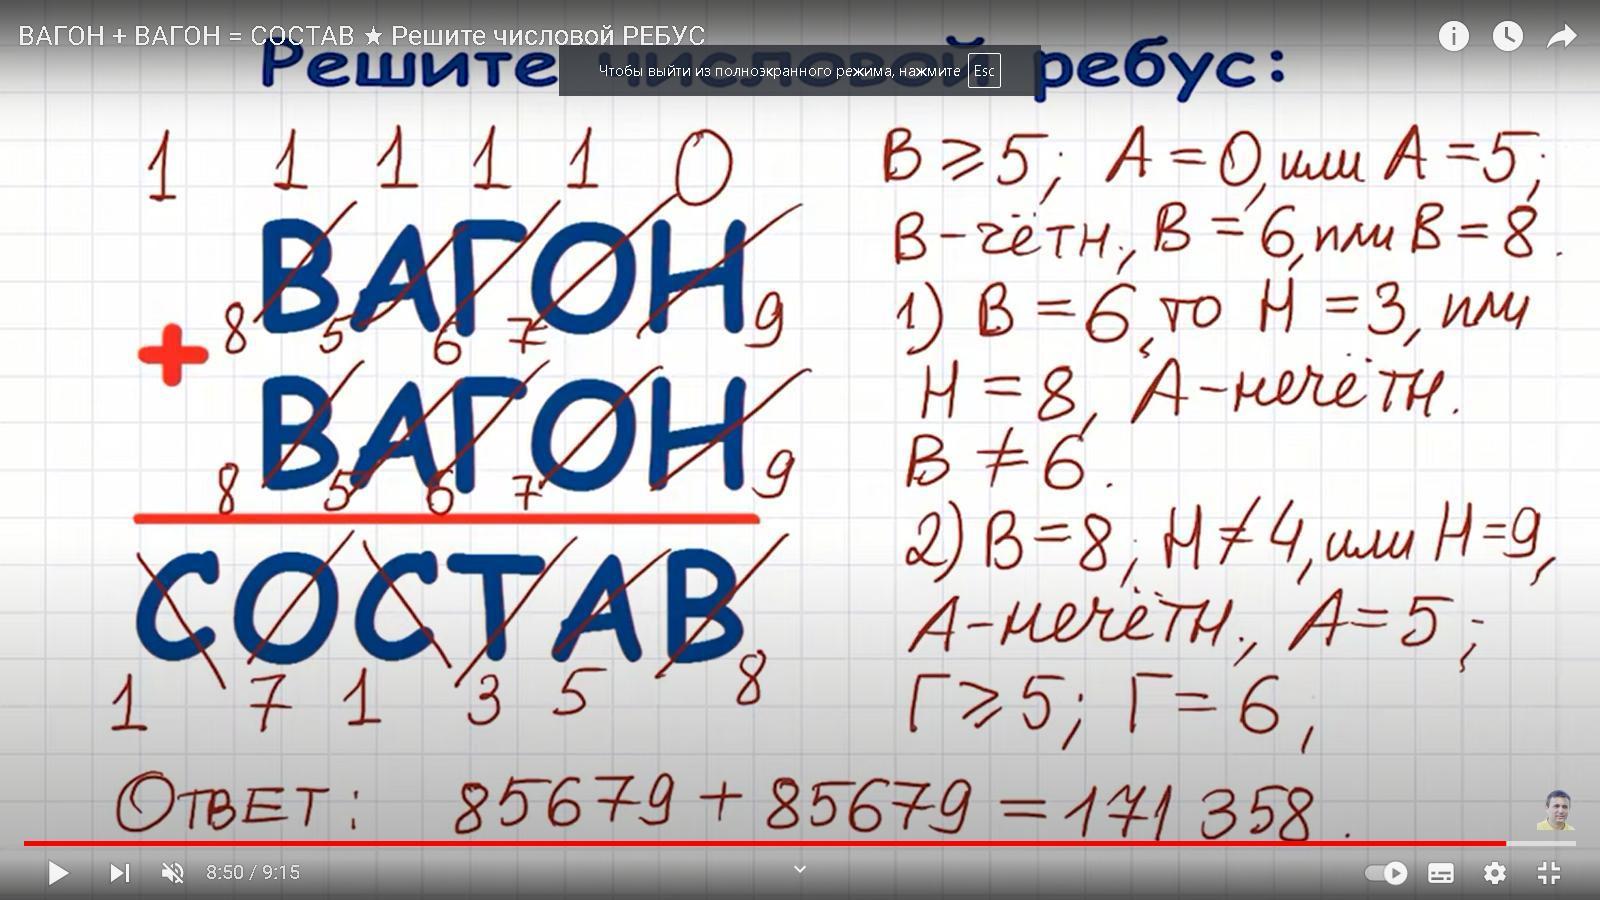 ВАГОН + ВАГОН = СОСТАВ ★ Решите числовой РЕБУС
Решите числовой ребус:
Чтобы выйти из полноэкранного режима, нажмите Esc
1 1 1 1 1 0
ВАГОН
8 5 6 7 9
+
ВАГОН
8 5 6 7 9
СОСТАВ
1 7 1 3 5 8
В ⩾ 5; А = 0, или А = 5;
В - чётн., В = 6, или В = 8.
1) В = 6, то Н = 3, или
Н = 8, А - нечётн.
В ≠ 6.
2) В = 8; Н ≠ 4, или Н = 9,
А - нечётн., А = 5;
Г ⩾ 5; Г = 6,
Ответ: 85679 + 85679 = 171 358.
8:50 / 9:15